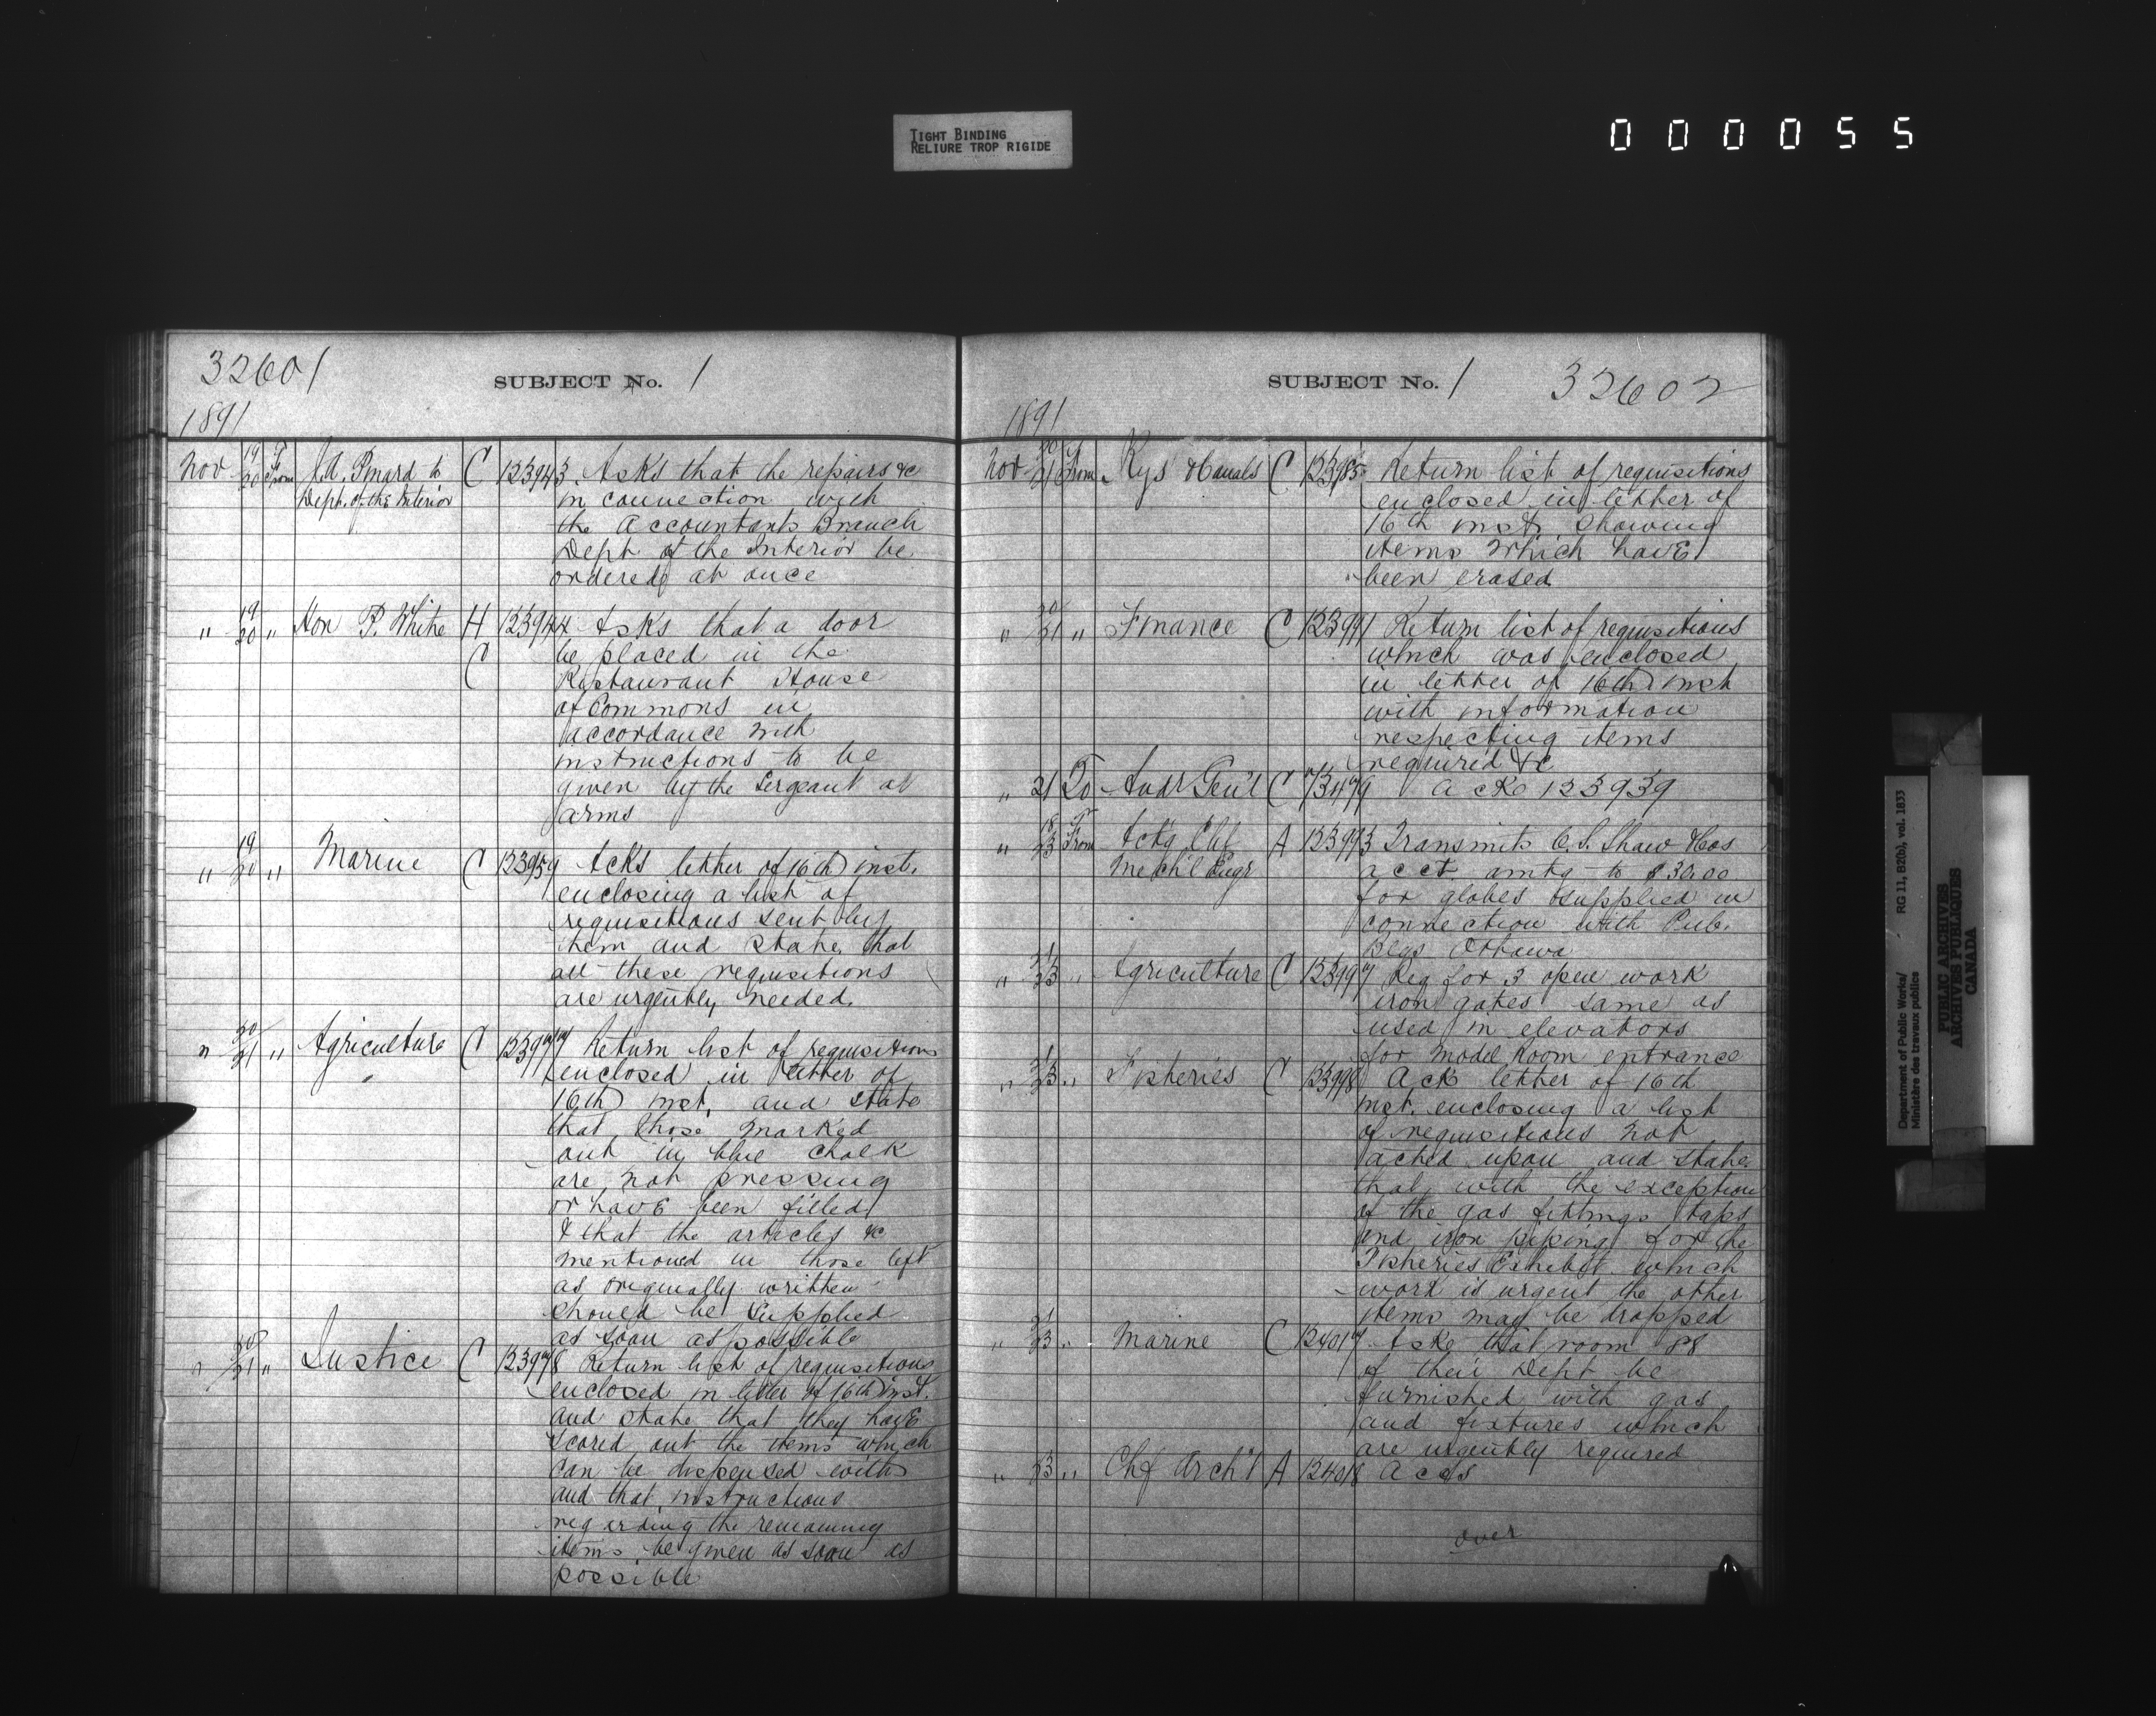 TIGHT BINDING
RELIURE TROP RIGIDE
000055
32601
SUBJECT No. 1
1891
Nov 19/20 From J.A. Pinard to Dept. of the Interior C 123943 Asks that the repairs &c
in connection with
the Accountants Branch
Dept of the Interior be
ordered at once
" 19/20 " Hon P. White H C 123944 Asks that a door
be placed in the
Restaurant House
of Commons in
accordance with
instructions to be
given by the Sergeant at
arms
" 19/20 " Marine C 123959 Acks letter of 16th inst.
enclosing a list of
requisitions sent by
them and state that
all these requisitions
are urgently needed.
" 20/21 " Agriculture C 123977 Return list of requisitions
enclosed in letter of
16th inst. and state
that those marked
out in blue chalk
are not pressing
or have been filled
& that the articles &c
mentioned in those left
as originally written
should be supplied
as soon as possible
" 20/21 " Justice C 123978 Return list of requisitions
enclosed in letter of 16th inst.
and state that they have
scored out the items which
can be dispensed with
and that instructions
regarding the remaining
items be given as soon as
possible
SUBJECT No. 1 32602
1891
Nov 20/21 From Rys & Canals C 123985 Return list of requisitions
enclosed in letter of
16th inst showing
items which have
been erased
" 20/21 " Finance C 123991 Return list of requisitions
which was enclosed
in letter of 16th inst
with information
respecting items
required &c
" 21 To Audr Gen'l C 73479 Acks 123939
" 18/23 From Actg Chf Mech'l Engr A 123993 Transmits C.S. Shaw & Cos
acct amtg to $30.00
for globes supplied in
connection with Pub.
Blgs Ottawa
" 21/23 " Agriculture C 123997 Req for 3 open work
iron gates same as
used in elevators
for Model Room entrance
" 21/23 " Fisheries C 123998 Ack letter of 16th
inst. enclosing a list
of requisitions not
acted upon and state
that with the exception
of the gas fittings taps
and iron piping for the
Fisheries Exhibit which
work is urgent the other
items may be dropped
" 21/23 " Marine C 124017 Asks that room 88
of their Dept be
furnished with gas
and fixtures which
are urgently required
" 23 " Chf Arch't A 124018 Accts
over
Department of Public Works/
Ministère des travaux publics
RG 11, B2(b), vol. 1833
PUBLIC ARCHIVES
ARCHIVES PUBLIQUES
CANADA